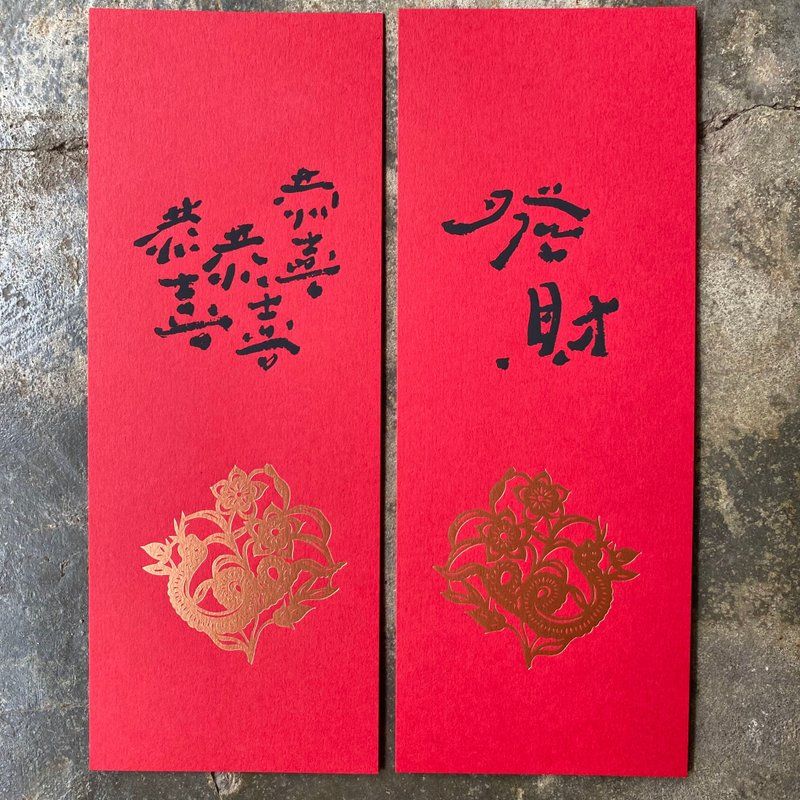 恭喜
恭喜
恭喜
發
財